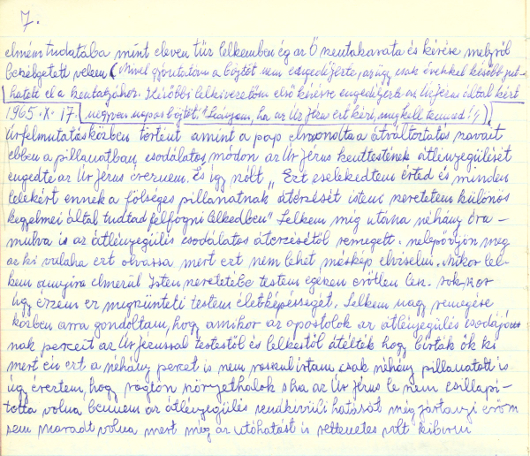 7.
elmém tudatába mint eleven tűz lelkemben ég az Ő szentakarata és kérése melyről
beszélgetett velem (Mivel gyóntatóm a böjtöt nem engedélyezte, az ügy csak évekkel később jut-
hatott el a szentatyához. Későbbi lelkivezetőm első kérésre engedélyezte az Úr Jézus által kért
1965. X. 17. negyven napos böjtöt. "Leányom, ha az Úr Jézus ezt kéri, meg kell tenned"!)
Úrfelmutatás közben történt amint a pap elmondta a átváltoztatás szavait
ebben a pillanatban csodálatos módon az Úr Jézus szenttestének átlényegülését
engedte az Úr Jézus éreznem. És így szólt "Ezt eselekedtem érted és minden
lelekért ennek a fölséges pillanatnak átérzését isten szeretetem különös
kegyelmei által tudtad felfogni lelkedben" Lelkem még utána néhány óra -
mulva is az átlényegülés csodálatos átérzésétől remegett. nelepődjön meg
az ki valaha ezt olvassa mert ezt nem lehet másképp elviselni. Mikor lel-
kem annyira elmerül Isten szeretetébe testem egészen erőtlen lesz. sokszor
úgy érzem ez megszünteti testem életképességét. Lelkem nagy remegése
közben arra gondoltam, hogy amikor az apostolok az átlényegülés csodájá
nak perceit az Úr Jézussal testestől és lelkestől átélték hogy bírták ők ki
mert én ezt a néhány percet is nem rosszul írtam csak néhány pillanatot is
úgy éreztem, hogy rögtön szörnyethalok s ha az Úr Jézus le nem csillapí-
totta volna bennem az átlényegülés rendkívüli hatását még járkányi erőm
sem maradt volna mert még az utóhatást is rettenetes volt kibírni